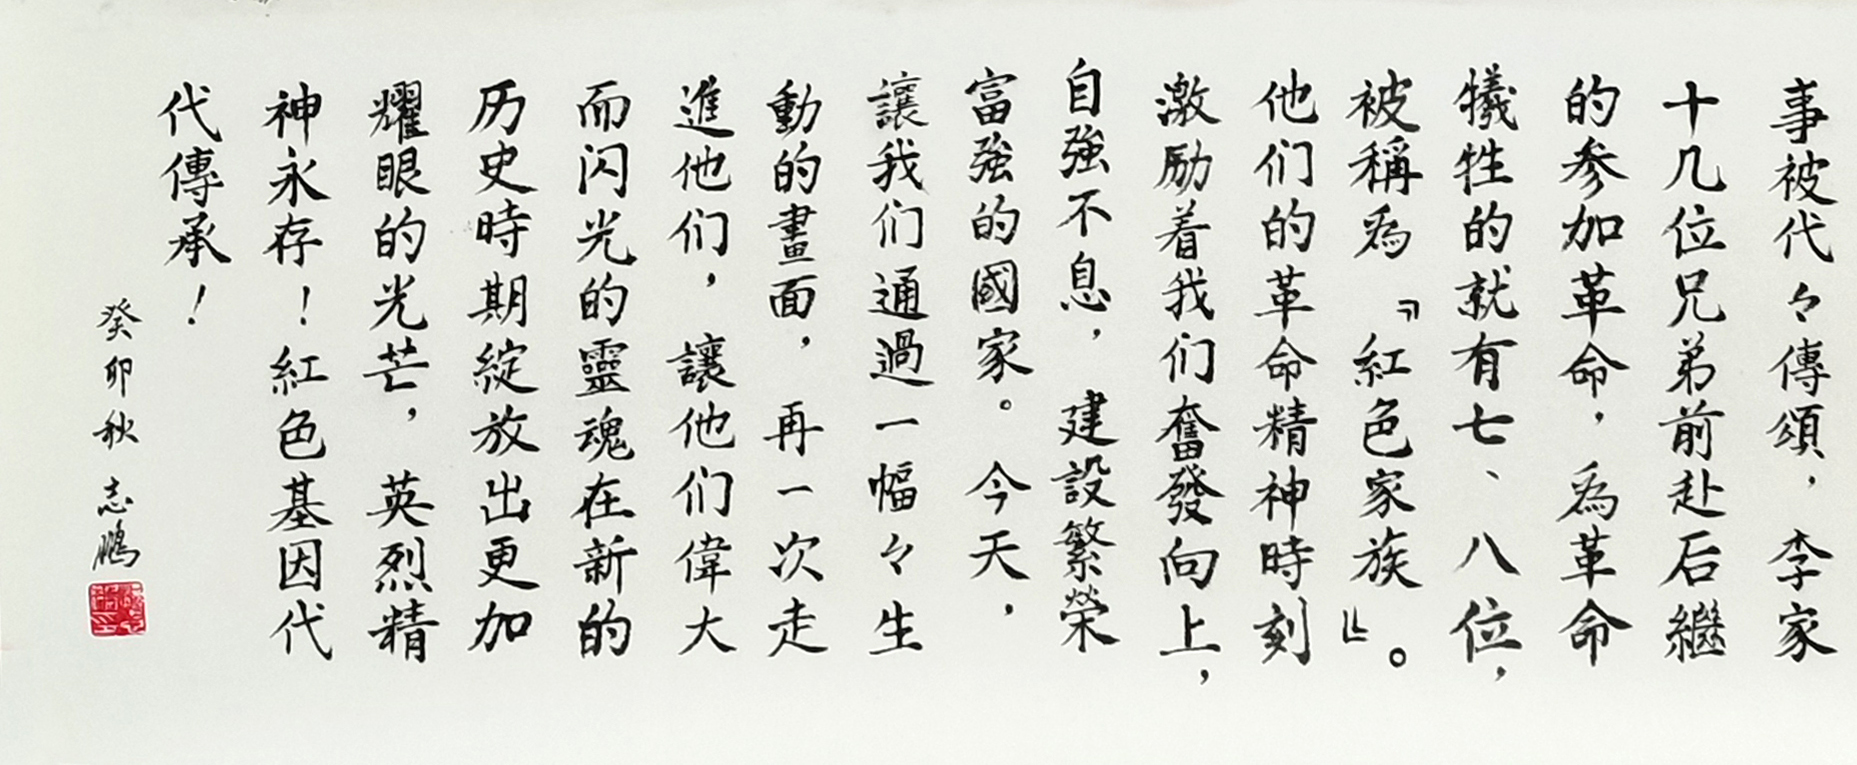 事被代々傳頌，李家
十几位兄弟前赴后繼
的参加革命，爲革命
犧牲的就有七、八位，
被稱爲『紅色家族』。
他们的革命精神時刻
激励着我们奮發向上，
自強不息，建設繁榮
富強的國家。今天，
讓我们通過一幅々生
動的畫面，再一次走
進他们，讓他们偉大
而闪光的靈魂在新的
历史時期綻放出更加
耀眼的光芒，英烈精
神永存！紅色基因代
代傳承！
癸卯秋 志鵬